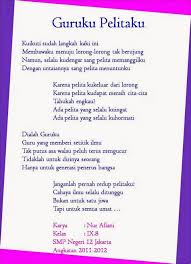 Guruku Pelitaku
Kuikuti sudah langkah kaki ini
Membawaku menuju lorong-lorong tak berujung
Namun, selalu kudengar sang pelita memanggilku
Dengan untaiannya sang pelita menuntunku
Karena pelita kukeluar dari lorong
Karena pelita kudapat mencari cita-cita
Tahukah engkau?
Ada pelita yang selalu kuingat
Ada pelita yang selalu kuhormati
Dialah Guruku
Guru yang memberi setitik ilmu
Tak putus asa walau peluh terus mengucur
Tidaklah untuk dirinya seorang
Hanya untuk generasi penerus bangsa
Janganlah pernah redup pelitaku!
Cahaya ilmu selalu ditunggu
Bukan untuk satu jiwa
Tapi untuk semua umat ....
Karya : Nur Afiani
Kelas : IX.8
SMP Negeri 12 Jakarta
Angkatan 2011-2012